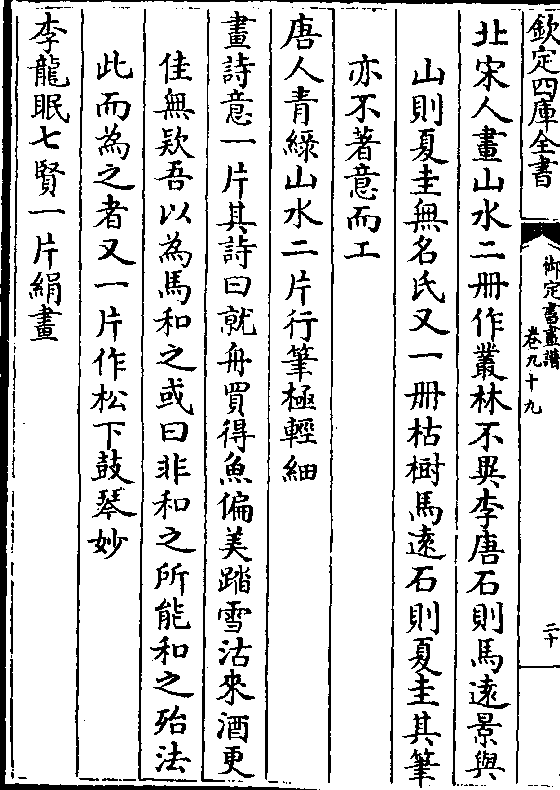 欽定四庫全書
御定書畫譜
卷九十九
二十
北宋人畫山水二冊作叢林不異李唐石則馬遠景與
山則夏圭無名氏又一冊枯樹馬遠石則夏圭其筆
亦不著意而工
唐人青綠山水二片行筆極輕細
畫詩意一片其詩曰就舟買得魚偏美踏雪沽來酒更
佳無欵吾以為馬和之或曰非和之所能和之殆法
此而為之者又一片作松下鼓琴妙
李龍眠七賢一片絹畫